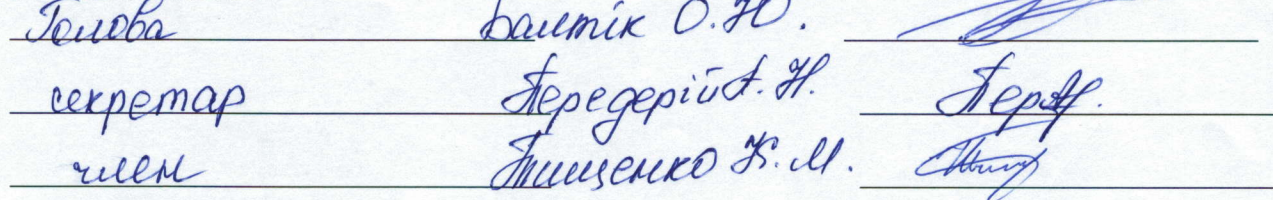 Голова Балтік О. Ю.
секретар Передерій А. Н. Пер
член Тищенко К. М.